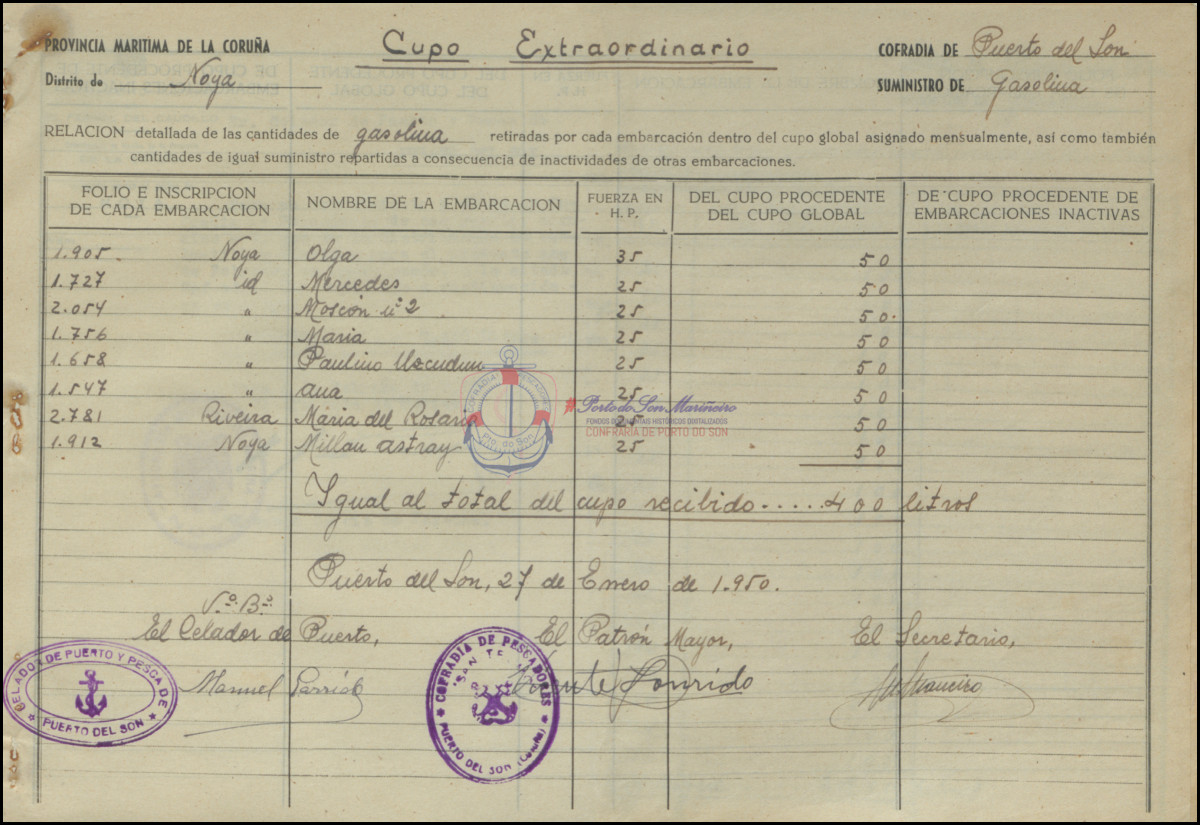 PROVINCIA MARITIMA DE LA CORUÑA
Cupo Extraordinario
COFRADIA DE Puerto del Son
Distrito de Noya
SUMINISTRO DE Gasolina
RELACION detallada de las cantidades de gasolina retiradas por cada embarcación dentro del cupo global asignado mensualmente, así como también
cantidades de igual suministro repartidas a consecuencia de inactividades de otras embarcaciones.
FOLIO E INSCRIPCION DE CADA EMBARCACION
NOMBRE DE LA EMBARCACION
FUERZA EN H. P.
DEL CUPO PROCEDENTE DEL CUPO GLOBAL
DE CUPO PROCEDENTE DE EMBARCACIONES INACTIVAS
1.905. Noya Olga 35 50
1.727 id Mercedes 25 50
2.054 " Moscón nº 2 25 50.
1.756 " Maria 25 50
1.658 " Paulino Uzcudun 25 50
1.547 " Ana 25 50
2.781 Riveira Maria del Rosario 25 50
1.912 Noya Millan Astray 25 50
Igual al total del cupo recibido.....400 litros
Puerto del Son, 27 de Enero de 1.950.
Vº. Bº.
El Celador de Puerto, El Patrón Mayor, El Secretario,
Manuel
CELADOR DE PUERTO Y PESCA DE
PUERTO DEL SON
COFRADIA DE PESCADORES
PUERTO DEL SON (Coruña)
COFRADIA
Pto. do Son
Porto do Son Mariñeiro
FONDOS DOCUMENTAIS HISTÓRICOS DIXITALIZADOS
CONFRARÍA DE PORTO DO SON